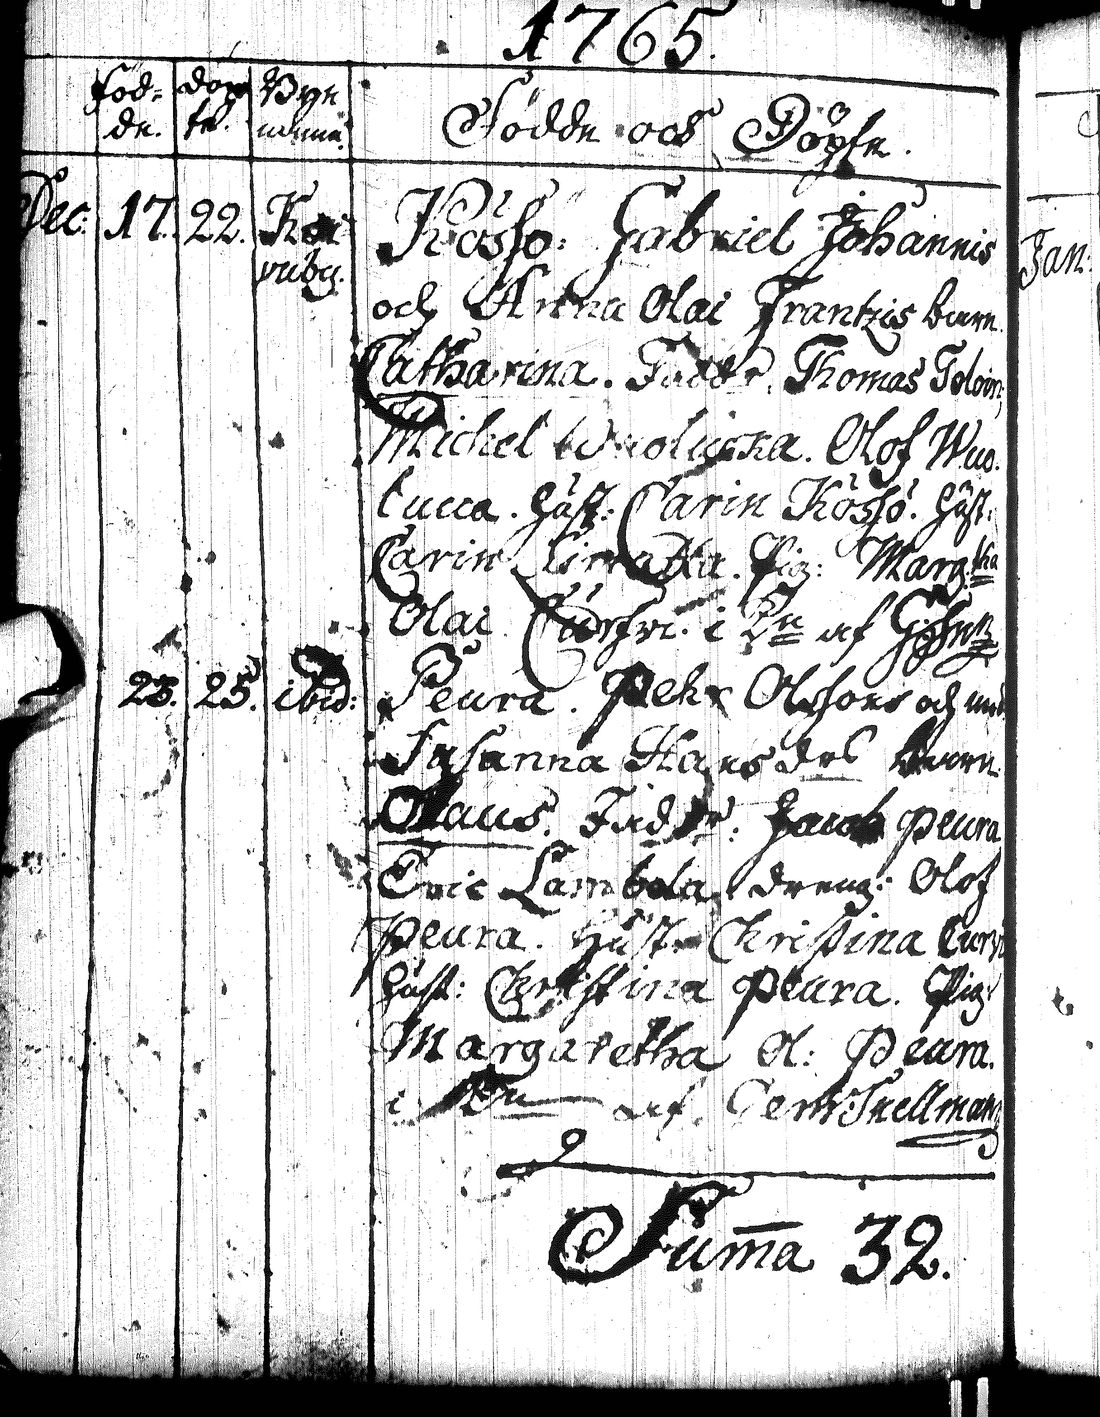 1765.
Föd= döp Byn
de. te. namn.
Födde och Döpte.
Dec: 17. 22. Kai
ruby.
Kössö. Gabriel Johannis
och Anna Olai Frantzis barn
Catharina. Fadd: Thomas
Michel Olof Wuo.
lucca. Hüst: Carin Kössö. Hüst:
Carin Pig: Marg:tha
Olai i af
23. 25. ibid: Peura. Pehr Olssons och
Susanna Hansdrs barn
Olaus. Fadd:r: Jacob Peura
Eric Lambela, dreng: Olof
Peura. Hüst: Christina
Hüst: Christina Peura. Pig:
Margaretha Ol: Peura.
i af Snellman
Suma 32.
Jan: